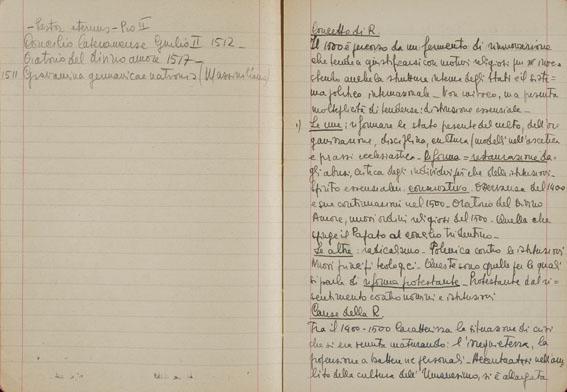 - Pastor eternus - Pio II
Concilio Lateranense Giulio II 1512 -
Oratorio del divino amore 1517 -
1511 Gravamina germanicae nationis (Massimiliano)
Concetto di R
Il 1500 è percorso da un fermento di rinnovazione
che tende a giustificarsi con motivi religiosi
anche la struttura interna degli Stati e il siste=
ma politico internazionale - Non univoco, ma presenta
molteplicità di tendenze: distinzione essenziale -
1) Le une: riformare lo stato presente del culto, dell'or=
ganizzazione, disciplina, cultura (modelli nell'ascetica
e prassi ecclesiastica - Riforma = restaurazione da=
gli abusi, critica degli individui più che delle istituzioni -
Spirito essenzialm. conservativo. Osservanza del 1400
e sue continuazioni nel 1500 - Oratorio del Divino
Amore, nuovi ordini religiosi del 1500 - Quella che
spinge il Papato al concilio tridentino -
Le altre: radicalismo - Polemica contro le istituzioni
Nuovi principi teologici - Queste sono quelle per le quali
si parla di riforma protestante - Protestante dal ri=
sentimento contro uomini e istituzioni
Cause della R
Tra il 1400 - 1500 caratterizza la situazione di crisi
che si era venuta maturando: l'irrequietezza, la
nell'am=
bito della cultura dell'Umanesimo, si è allargata